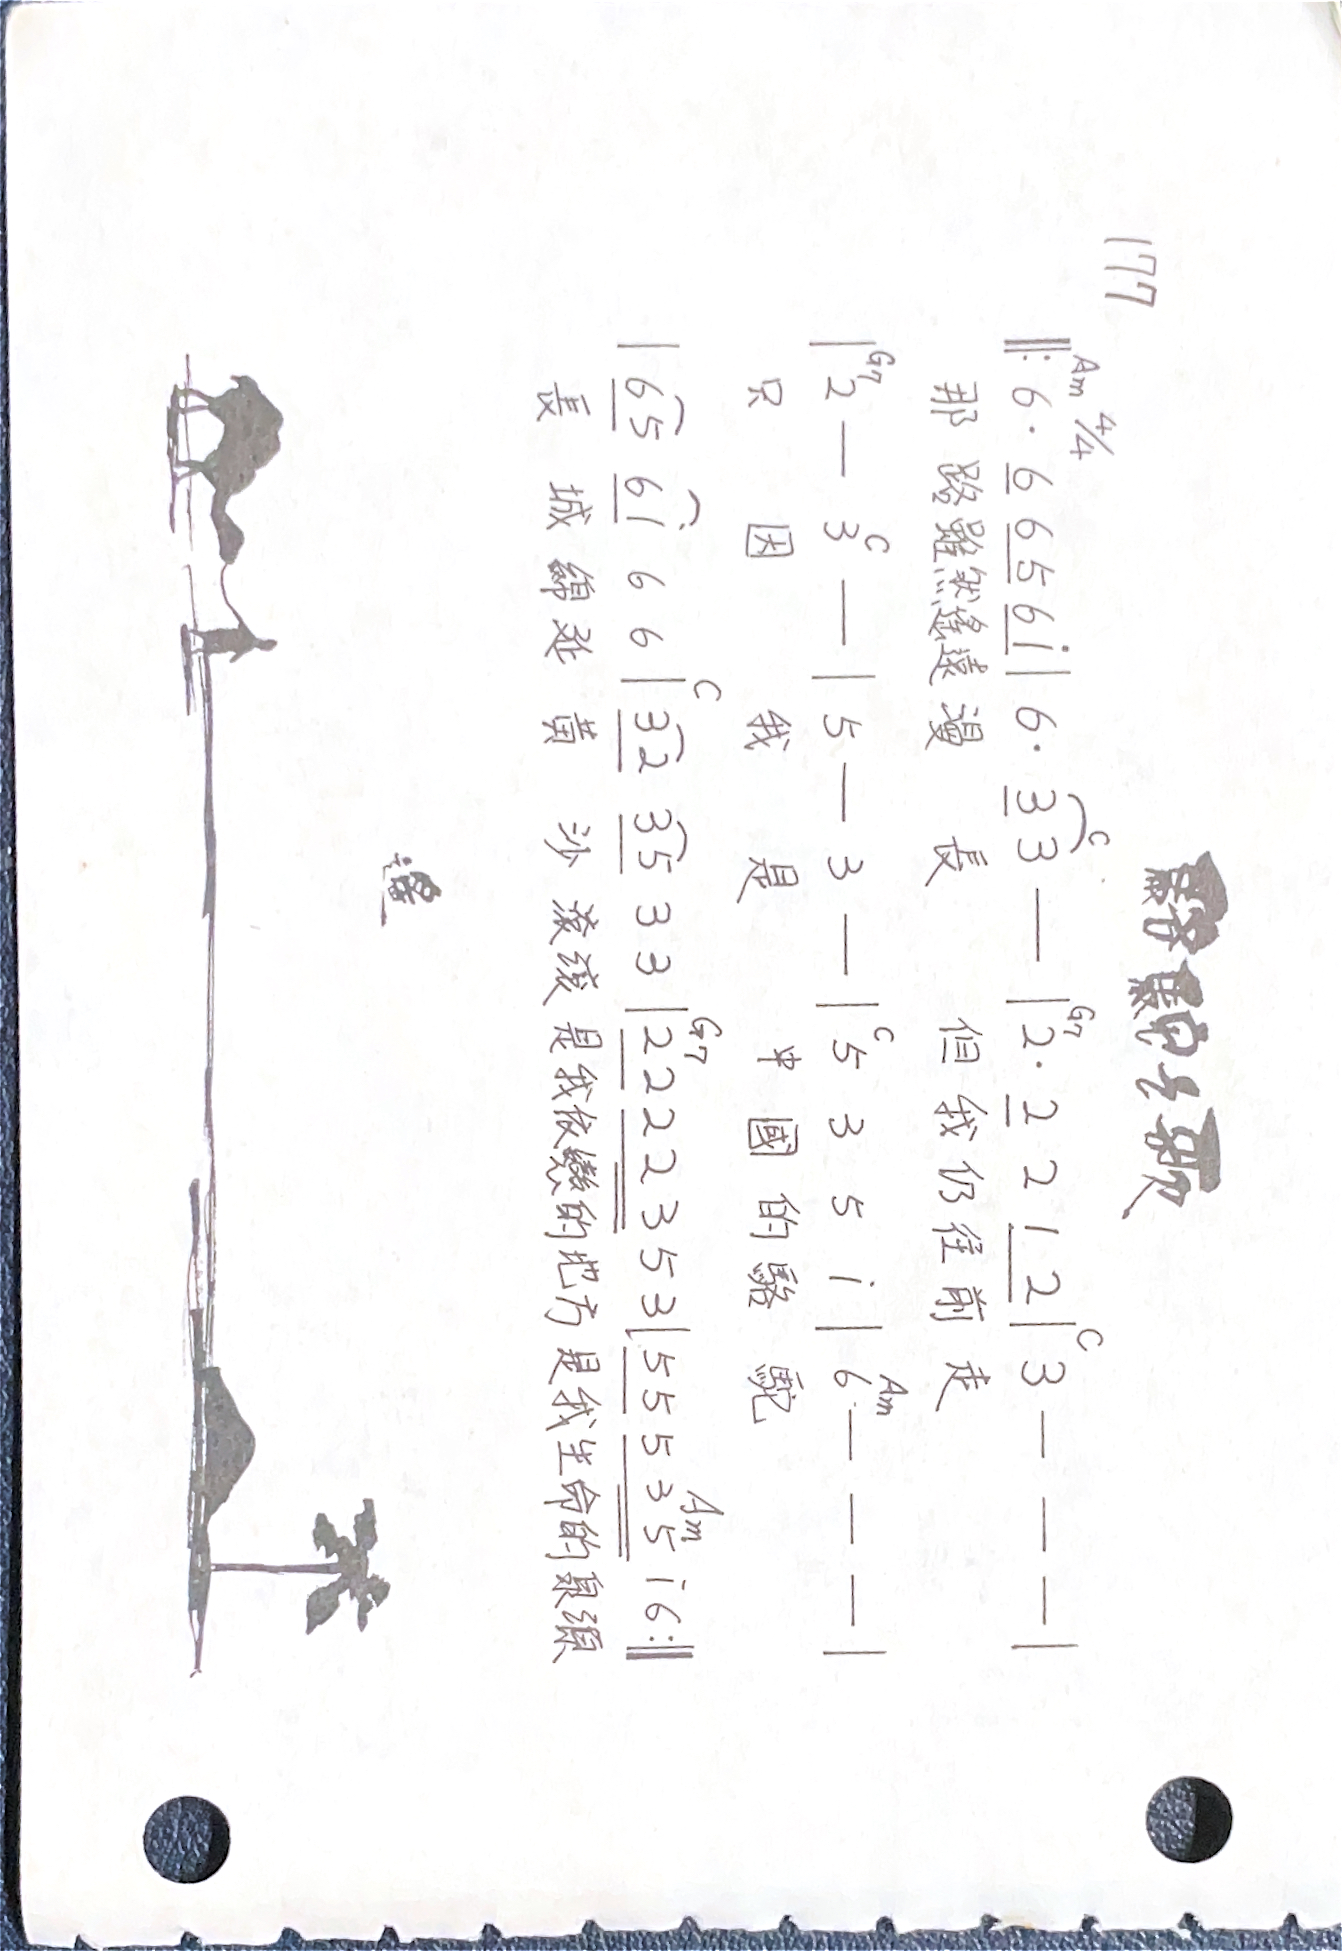 駱駝之歌
177
Am 4/4 C G7 C
‖: 6· 6 6 5 6 i | 6· 3 3 — | 2· 2 2 1 2 | 3 — — — |
那路雖然遙遠漫 長 但我仍往前走
G7 C C Am
| 2 — 3 — | 5 — 3 — | 5 3 5 i | 6 — — — |
只 因 我 是 中國的駱駝
C G7 Am
| 6 5 6 i 6 6 | 3 2 3 5 3 3 | 2 2 2 2 3 5 3 | 5 5 5 3 5 i 6 :‖
長 城 綿延 黃 沙 滾滾 是我依戀的地方 是我生命的泉源
遙